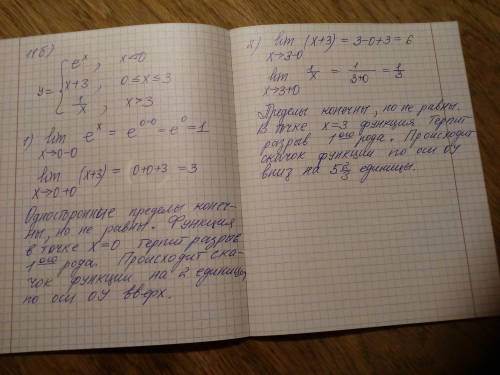 11б)
y = { e^x, x<0
x+3, 0≤x≤3
1/x, x>3
1) lim e^x = e^(0-0) = e^0 = 1
x→0-0
lim (x+3) = 0+0+3 = 3
x→0+0
Односторонние пределы конеч-
ны, но не равны. Функция
в точке x=0 терпит разрыв
1ого рода. Происходит ска-
чок функции на 2 единицы
по оси ОУ вверх.
2) lim (x+3) = 3-0+3 = 6
x→3-0
lim 1/x = 1/(3+0) = 1/3
x→3+0
Пределы конечны, но не равны.
В точке x=3 функция терпит
разрыв 1ого рода. Происходит
скачок функции по оси ОУ
вниз на 5 2/3 единицы.